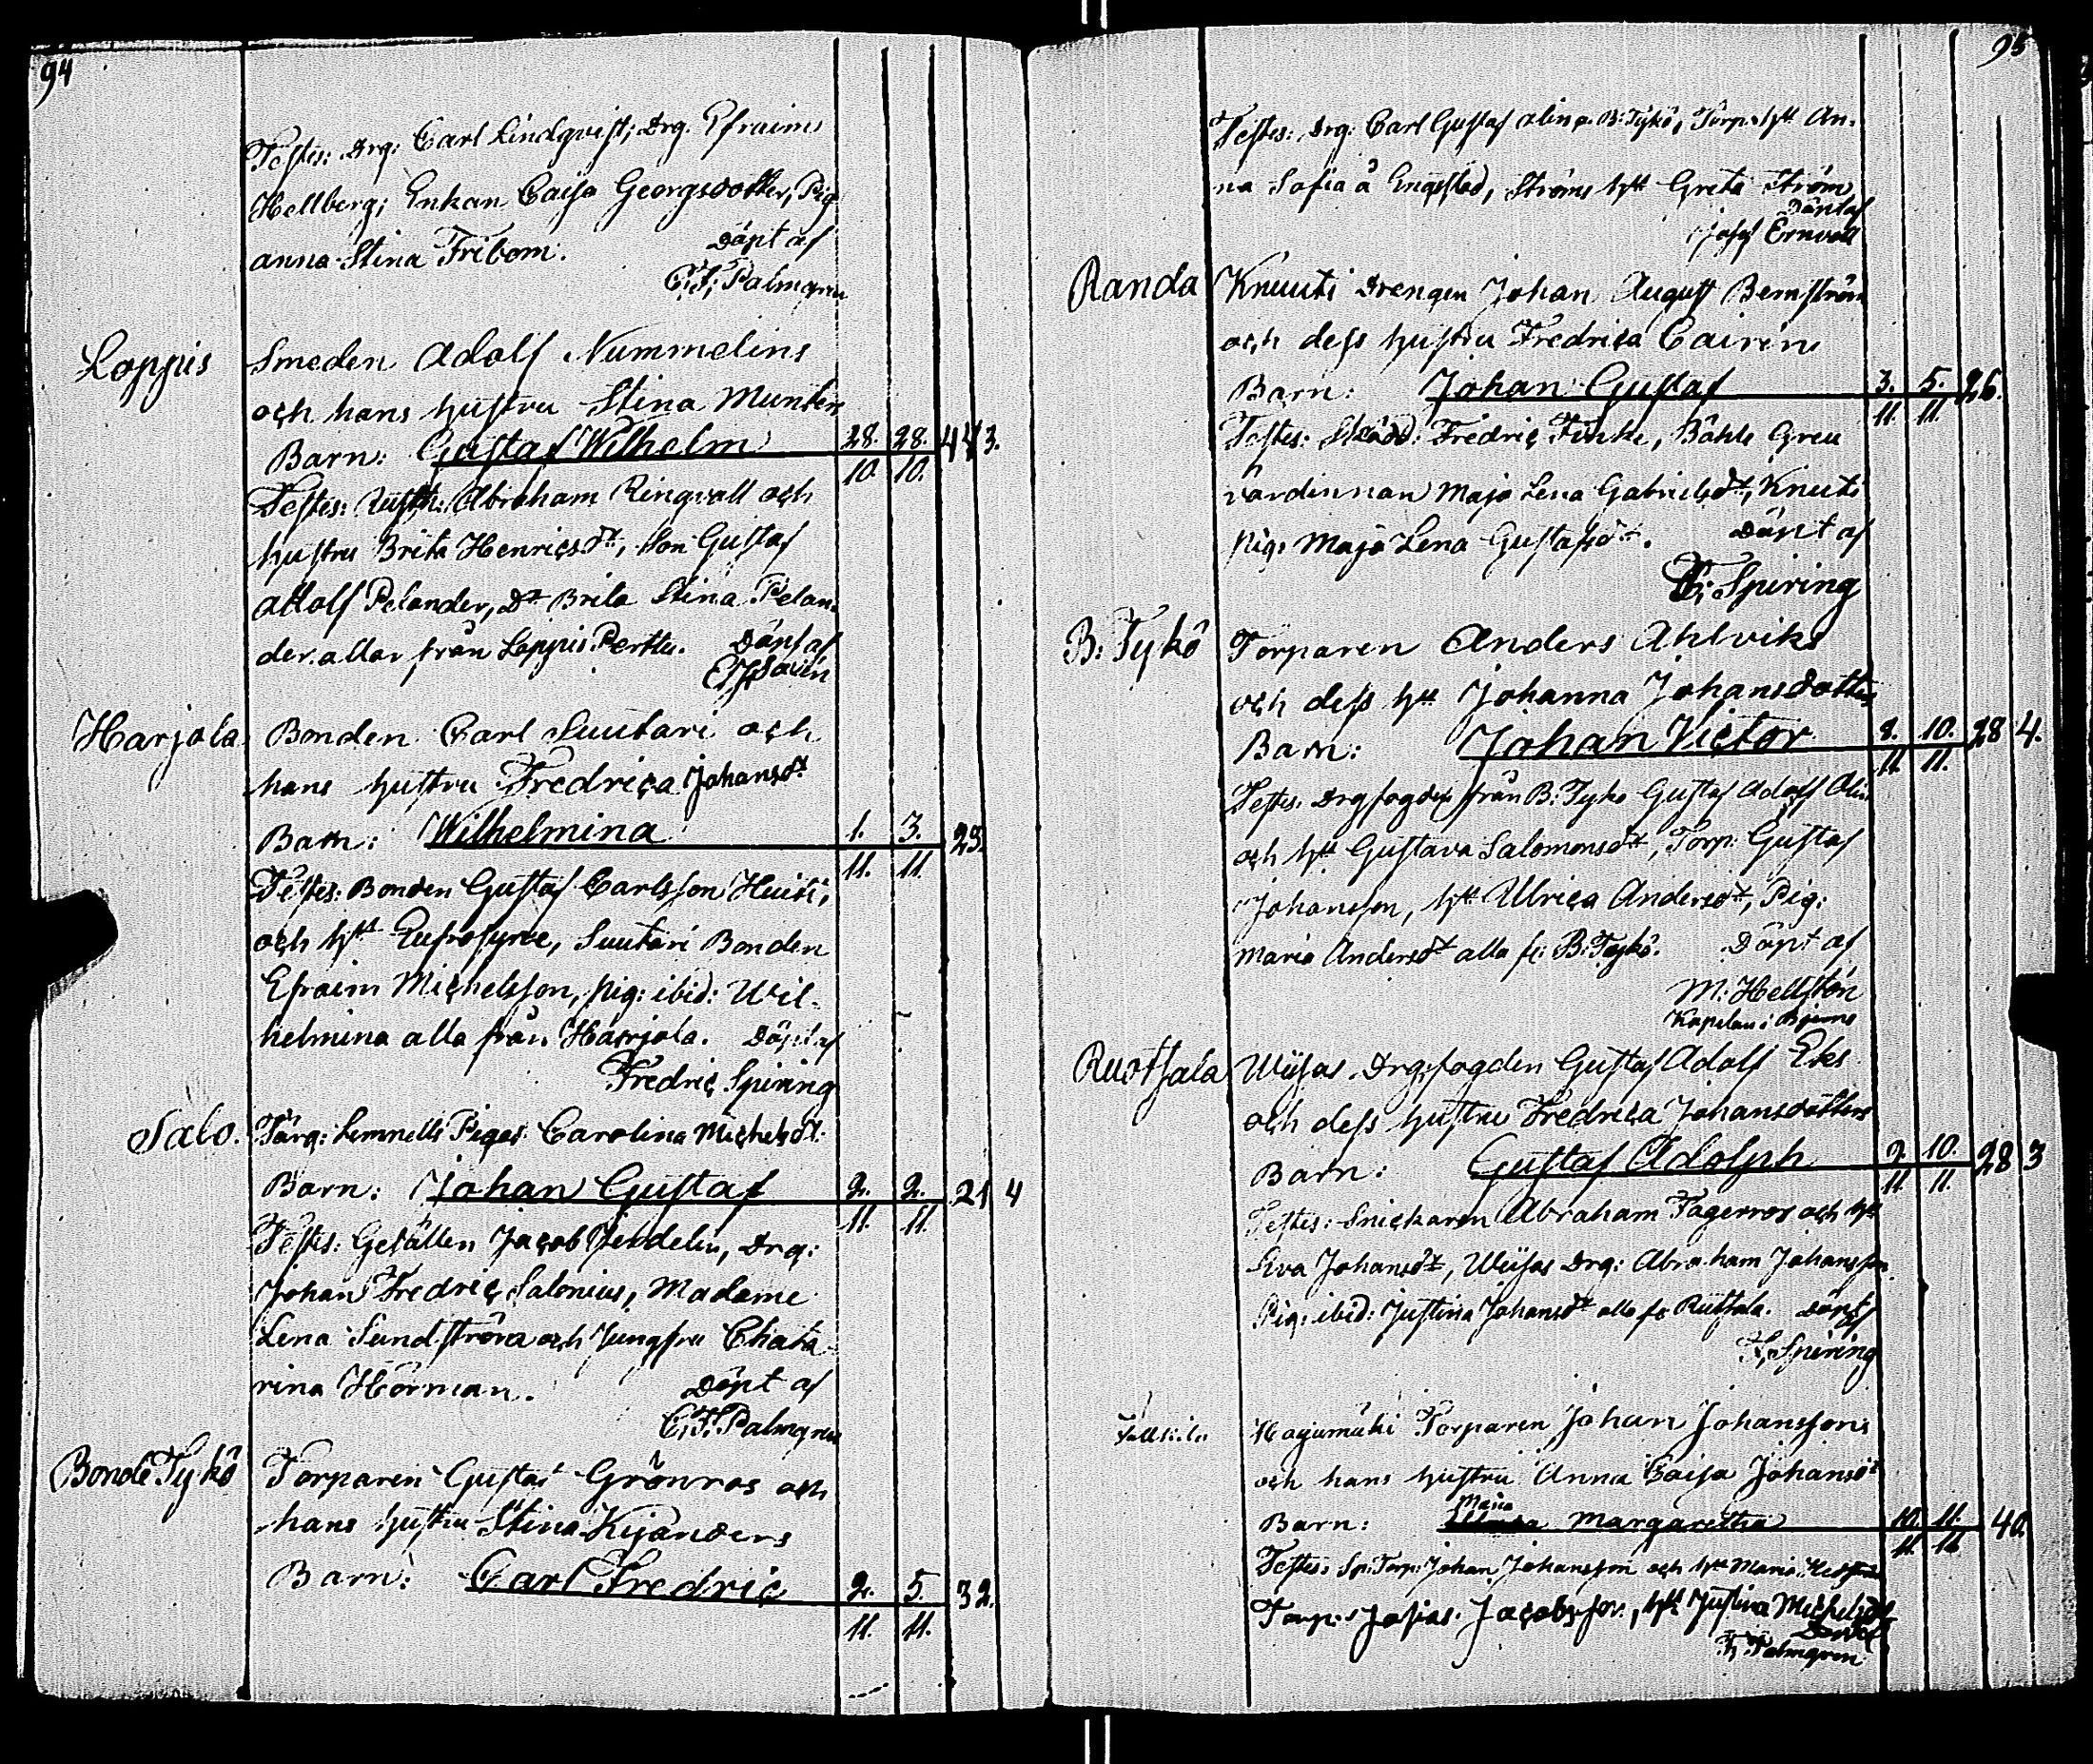 94
Testes: Drg: Carl Lindqvist; Drg. Efraim
Hellberg; Enkan Caisa Georgsdotter, Pig.
Anna Stina Fribom. Döpt af
C. F. Palmgren
Loppis Smeden Adolf Nummelins
och hans hustru Stina Munters
Barn: Gustaf Wilhelm 28. 28. 44 3.
10. 10.
Testes: Rusth: Abraham Ringvall och
hustru Brita Henricsdr, Son Gustaf
Adolf Pelander, Dr Brita Stina Pelan-
der. allar från Loppis Perttu. Döpt af
Harjola Bonden Carl Suutari och
hans hustru Fredrica Johansdr
Barn: Wilhelmina 1. 3. 23.
11. 11.
Testes: Bonden Gustaf Carlsson Huiti,
och htt Eufrosyne, Suutari Bonden
Efraim Michelsson, pig: ibid: Wil-
helmina alla från Harjola. Döpt af
Fredric Spiring
Salo. Färg: Lemnells Pigas Carolina Michelsdr.
Barn: Johan Gustaf 2. 2. 21 4
11. 11.
Testes: Gesällen Jacob Vendelin, Drg:
Johan Fredric Salonius, Madame
Lena Sundström och Jungfru Chata-
rina Hörman. Döpt af
C. F. Palmgren
Bonde Tykö Torparen Gustaf Grönros och
hans hustru Stina Kijanders
Barn: Carl Fredric 2. 5. 32.
11. 11.
95
Testes: Drg: Carl Gustaf Alin fr. B: Tykö, Torp: htt An-
na Sofia å Engsstad, Ströms htt Greta Ström
Döpt af
Josef Ernvall
Randa Knuuti Drengen Johan August Bernström
och dess hustru Fredrica Cairin
Barn: Johan Gustaf 3. 5. 26.
11. 11.
Testes: Fredric Finke, Böhle Gren
värdinnan Maja Lena Gabrielsdr, Knuuti
pig: Maja Lena Gustafsdr. Döpt af
F. Spiring
B: Tykö Torparen Anders Ahlviks
och dess htt Johanna Johansdotters
Barn: Johan Victor 8. 10. 28 4.
11. 11.
Testes: Drgfogden från B: Tykö Gustaf Adolf Alin
och htt Gustava Salomonsdr, Torp: Gustaf
Johansson, htt Ulrica Andersdr, Pig:
Maria Andersdr alla fr. B: Tykö. Döpt af
M: Hellstén
Kapelan i Bjerno
Ruotsala Wiisas Drgfogden Gustaf Adolf Eks
och dess hustru Fredrica Johansdotters
Barn: Gustaf Adolph 9. 10. 28 3
11. 11.
Testes: Snickaren Abraham Fagerros och htt
Eva Johansdr, Wiisas Drg: Abraham Johansson
Pig: ibid: Justina Johansdr alla fr Ruotsala. Döpt af
F. Spiring
Torparen Johan Johanssons
och hans hustru Anna Caisa Johansdr
Maria
Barn: Margaretha 10. 11. 40.
11. 11.
Testes: Sp: Torp: Johan Johansson och htt Maria
Torp: Josias Jacobsson, htt Justina Michelsdr
Döpt af
Palmgren